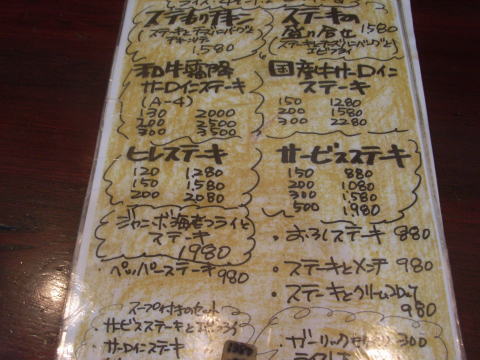 ステーキの
盛り合せ 1580
(ステーキとチーズハンバーグと
1580
エビフライ)
和牛霜降
サーロインステーキ
(A-4)
130 2000
200 2500
300 3500
国産牛サーロイン
ステーキ
150 1280
200 1580
300 2280
ヒレステーキ
120 1280
150 1580
200 2080
サービスステーキ
150 880
200 1080
300 1580
500 1980
ジャンボ海老フライと
ステーキ
1980
・ペッパーステーキ 980
・おろしステーキ 880
・ステーキとメンチ 980
・ステーキとクリームコロッケ
980
スープ付きのセット
・サービスステーキと
・サーロインステーキ
・ガーリック 300